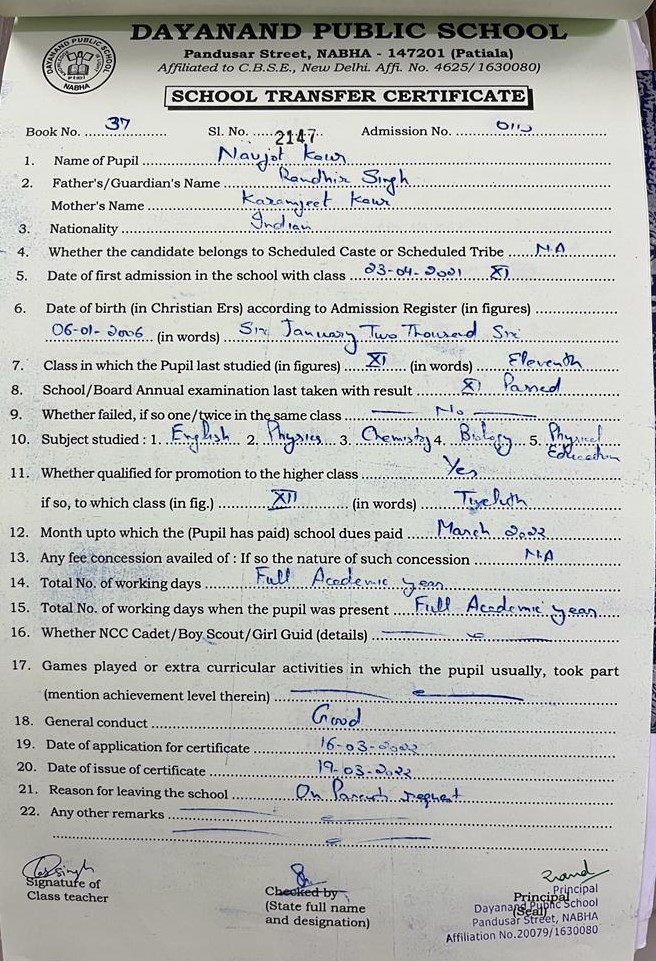 DAYANAND PUBLIC SCHOOL
Pandusar Street, NABHA - 147201 (Patiala)
Affiliated to C.B.S.E., New Delhi. Affi. No. 4625/ 1630080)
DAYANAND PUBLIC SCHOOL
NABHA
SCHOOL TRANSFER CERTIFICATE
Book No. 37 Sl. No. 2147 Admission No.
1. Name of Pupil Navjot Kaur
2. Father's/Guardian's Name Randhir Singh
Mother's Name Karamjeet Kaur
3. Nationality Indian
4. Whether the candidate belongs to Scheduled Caste or Scheduled Tribe N.A
5. Date of first admission in the school with class 23-04-2021 XI
6. Date of birth (in Christian Ers) according to Admission Register (in figures)
06-01-2006 (in words) Six January Two Thousand Six
7. Class in which the Pupil last studied (in figures) XI (in words) Eleventh
8. School/Board Annual examination last taken with result XI Passed
9. Whether failed, if so one/twice in the same class No
10. Subject studied : 1. English 2. Physics 3. Chemistry 4. Biology 5. Physical
Education
11. Whether qualified for promotion to the higher class Yes
if so, to which class (in fig.) XII (in words) Twelvth
12. Month upto which the (Pupil has paid) school dues paid March 2022
13. Any fee concession availed of : If so the nature of such concession N.A
14. Total No. of working days Full Academic year
15. Total No. of working days when the pupil was present Full Academic year
16. Whether NCC Cadet/Boy Scout/Girl Guid (details)
17. Games played or extra curricular activities in which the pupil usually, took part
(mention achievement level therein)
18. General conduct Good
19. Date of application for certificate 16-03-2022
20. Date of issue of certificate 19-03-2022
21. Reason for leaving the school On Parents request
22. Any other remarks
Signature of
Class teacher
Checked by
(State full name
and designation)
Principal
(Seal)
Principal
Dayanand Public School
Pandusar Street, NABHA
Affiliation No.20079/1630080